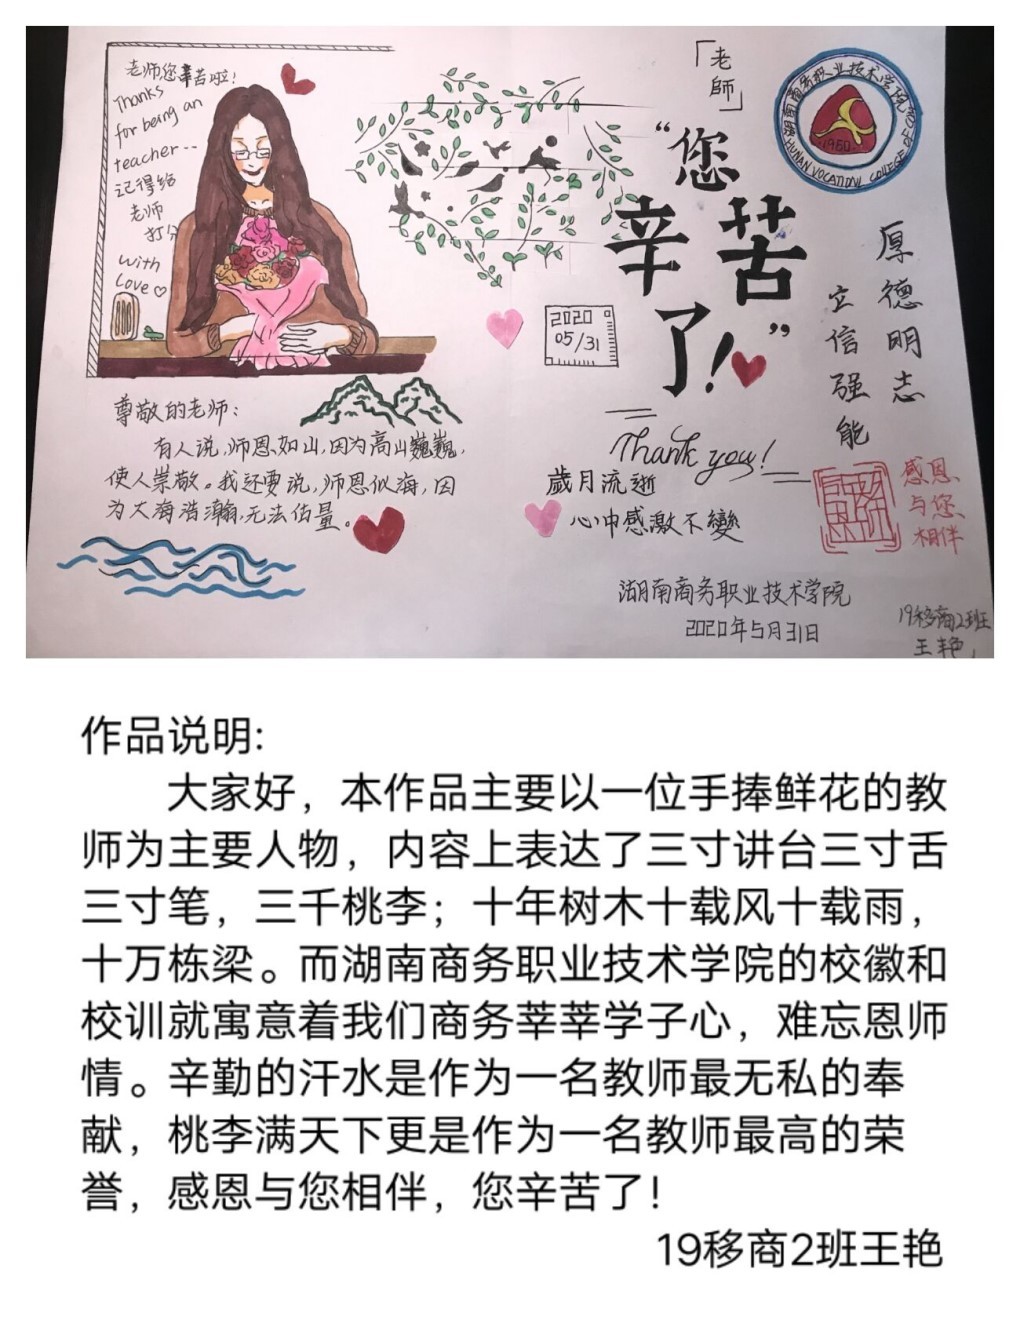 老师您辛苦啦!
Thanks
for being an
teacher--
记得给
老师
打分
with
Love
「老師」
"您
辛苦
了!"
湖南商务职业技术学院
HUNAN VOCATIONL COLLEGE OF
1960
厚德明志
立信强能
2020
05/31
尊敬的老师:
有人说,师恩如山,因为高山巍巍,
使人崇敬。我还要说,师恩似海,因
为大海浩瀚,无法估量。
Thank you!
歲月流逝
心中感激不變
感恩
与您
相伴
湖南商务职业技术学院
2020年5月31日
19移商2班
王艳
作品说明:
大家好，本作品主要以一位手捧鲜花的教
师为主要人物，内容上表达了三寸讲台三寸舌
三寸笔，三千桃李；十年树木十载风十载雨，
十万栋梁。而湖南商务职业技术学院的校徽和
校训就寓意着我们商务莘莘学子心，难忘恩师
情。辛勤的汗水是作为一名教师最无私的奉
献，桃李满天下更是作为一名教师最高的荣
誉，感恩与您相伴，您辛苦了!
19移商2班王艳